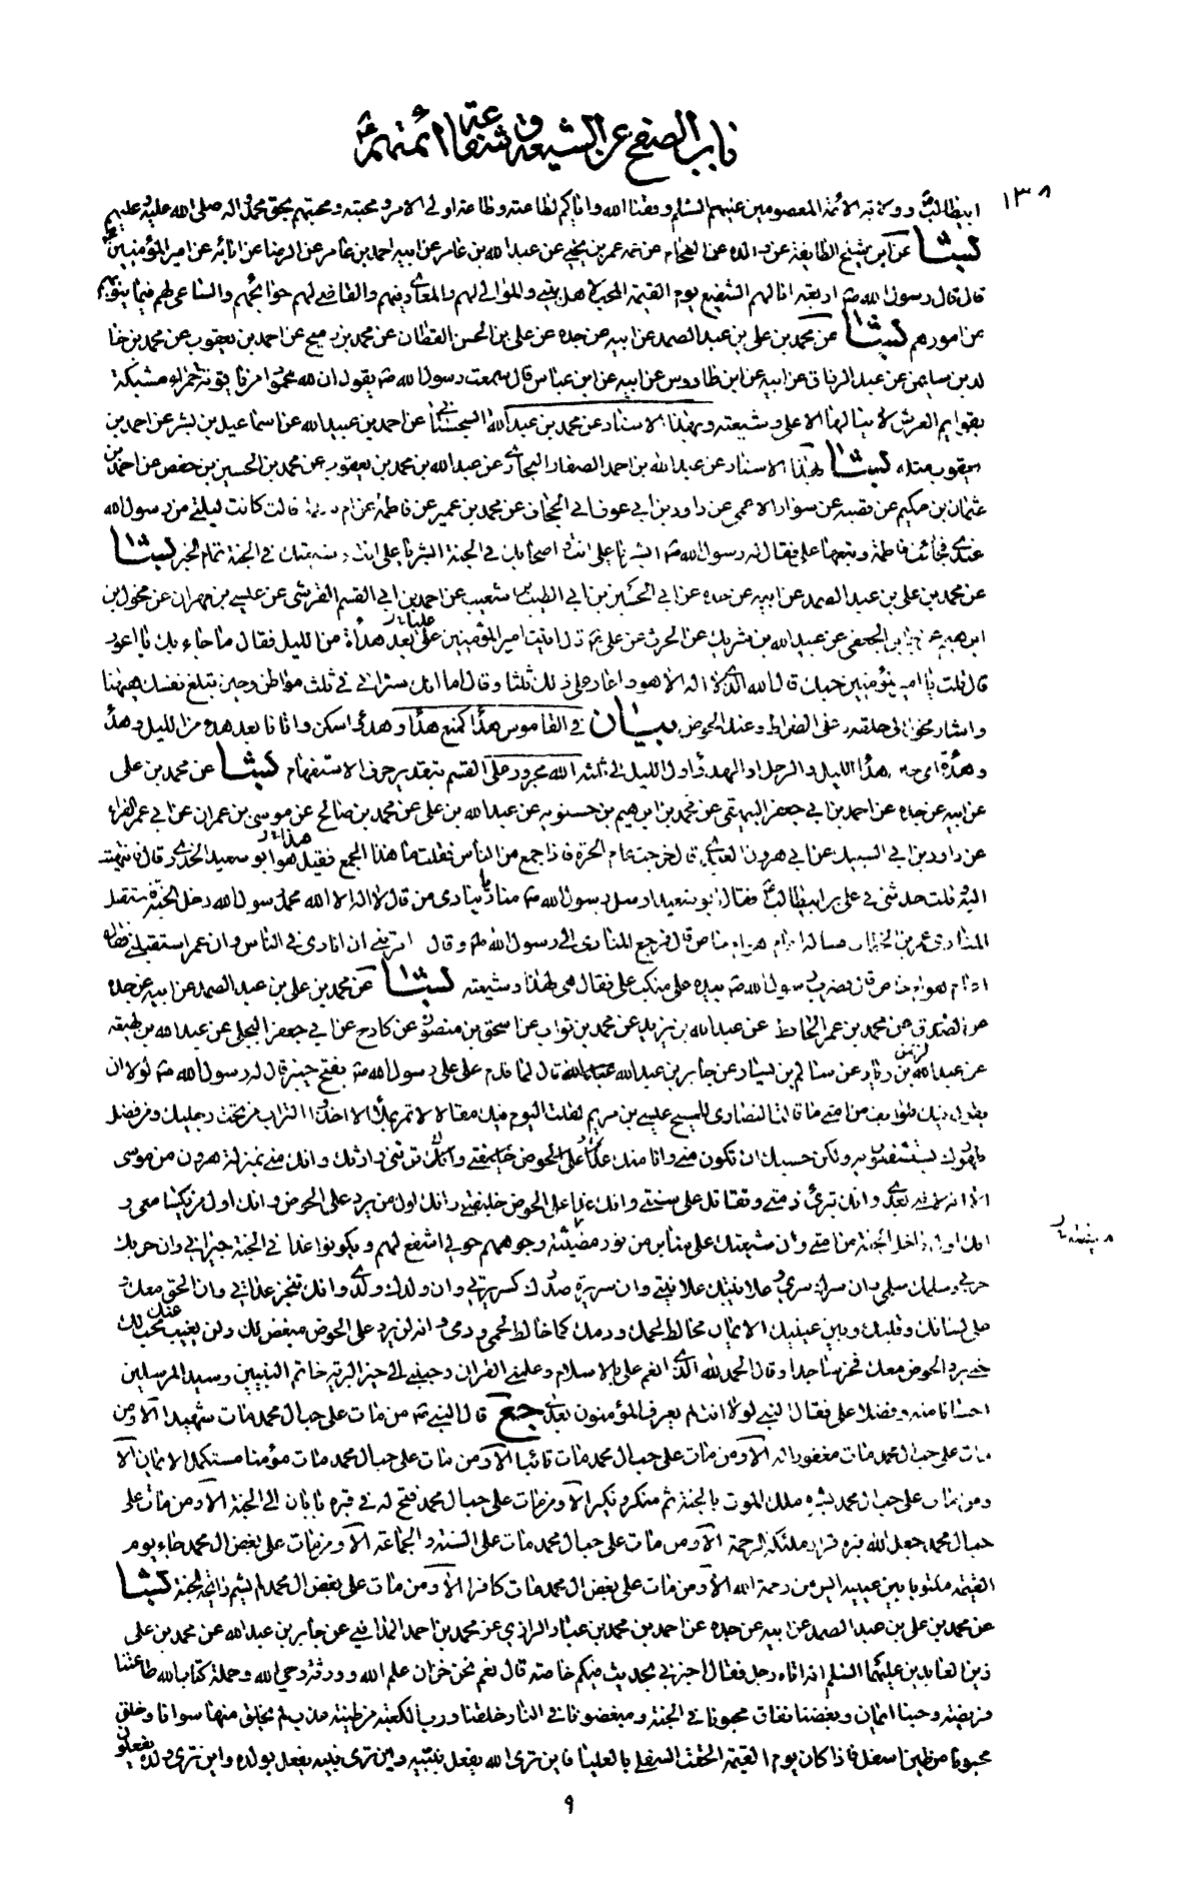 باب الصفح عن الشيعة و شفاعة أئمتهم
١٣٨
ابيطالب و ذريته الأئمة المعصومين عليهم السلم وفقنا الله واياكم لطاعته وطاعة اولى الامر و محبته و محبتهم بحق محمد واله صلى الله عليه و عليهم
بشا عن ابن شيخ الطايفة عن والده عن الفحام عن عمه عمر بن يحيى عن عبد الله بن عامر عن ابيه احمد بن عامر عن الرضا عن ابائه عن امير المؤمنين
قال قال رسول الله ص اربعة انا لهم الشفيع يوم القيمة المحب لاهل بيتى والموالى لهم والمعادى فيهم والقاضى لهم حوائجهم والساعى لهم فيما ينوبهم
عن امورهم بشا عن محمد بن على بن عبد الصمد عن ابيه عن جده عن على بن الحسن القطان عن محمد بن رميح عن احمد بن يعقوب عن محمد بن خا
لد بن سليمن عن عبد الرزاق عن ابيه عن ابن طاوس عن ابيه عن ابن عباس قال سمعت رسول الله ص يقول ان لله عمودا من ياقوتة حمراء مشبكة
بقوايم العرش لا ينالها الا على و شيعته وبهذا الاسناد عن محمد بن عبد الله السجستانى عن احمد بن عبيد الله عن اسماعيل بن بشر عن احمد بن
يعقوب مثله بشا بهذا الاسناد عن عبد الله بن احمد الصفار البخارى عن عبد الله بن محمد بن يعقوب عن محمد بن الحسين بن حفص عن احمد بن
عثمان بن حكيم عن قبيصة عن سوار الاعمى عن داود بن ابى عوف ابى الجحاف عن محمد بن عمير عن فاطمة عن ام سلمة قالت كانت ليلتى من رسول الله
عندى فجائت فاطمة و تبعها على فقال له رسول الله ص ابشر يا على انت و اصحابك فى الجنة ابشر يا على انت و شيعتك فى الجنة تمام الخبر بشا
عن محمد بن على بن عبد الصمد عن ابيه عن جده عن ابى الحسين بن ابى الطيب بن شعيب عن احمد بن ابى القسم القرشى عن عيسى بن مهران عن مخول بن
ابرهيم عن جابر الجعفى عن عبيد الله بن شريك عن الحرث عن على ع قال اتيت امير المؤمنين على بعد هدأة من الليل فقال ما جاء بك يا اعور
قال قلت يا امير المؤمنين حبك قال الله الذى لا اله الا هو و اعاد على ذلك ثلثا وقال اما انك سترانى فى ثلث مواطن حين تبلغ نفسك ههنا
واشار مخول الى حلقه و على الصراط و عند الحوض بيان فى القاموس هدأ كمنع هدأ و هدوءا سكن واتانا بعد هدء من الليل و هدأ
و هدأة اى حين هدأ الليل والرجل او الهدء اول الليل الى ثلثه الله مجرور على القسم بتقدير حرف الاستفهام بشا عن محمد بن على
عن ابيه عن جده عن احمد بن ابى جعفر البيهقى عن محمد بن ابرهيم بن حسنويه عن عبد الله بن على عن محمد بن صالح عن موسى بن عمران عن ابى عمر الفراء
عن داود بن ابى السبيك عن ابى هرون العبدى قال خرجت عام الحرة فاذا جمع من الناس فقلت ما هذا الجمع فقيل هو ابو سعيد الخدرى قال فانتهيت
اليه قلت حدثنى فى على بن ابيطالب فقال ابو سعيد ارسل رسول الله ص مناديا ينادى من قال لا اله الا الله محمد رسول الله دخل الجنة فاستقبل
المنادى عمر بن الخطاب فساله اعام هو ام خاص قال فرجع المنادى الى رسول الله ص وقال امرتنى ان انادى فى الناس وان عمر استقبلنى فقال
اعام هو ام خاص قال فضرب رسول الله ص بيده على منكب على فقال هى لهذا و شيعته بشا عن محمد بن على بن عبد الصمد عن ابيه عن جده
عن الصدوق عن محمد بن عمر الحافظ عن عبد الله بن يزيد عن محمد بن ثواب عن اسحق بن منصور عن كادح عن ابى جعفر البجلى عن عبد الله بن لهيعة
عن عبد الرحمن بن زياد عن سالم بن يسار عن جابر بن عبد الله قال لما قدم على على رسول الله ص بفتح خيبر قال له رسول الله ص لولا ان
يقول فيك طوايف من امتى ما قالت النصارى للمسيح عيسى بن مريم لقلت اليوم فيك مقالا لا تمر بملأ الا اخذوا التراب من تحت رجليك ومن فضل
طهورك يستشفون به ولكن حسبك ان تكون منى وانا منك وانك ترثنى وارثك وانك منى بمنزلة هرون من موسى
الا انه لا نبى بعدى وانك تبرئ ذمتى وتقاتل على سنتى وانك غدا على الحوض خليفتى وانك اول من يرد على الحوض وانك اول من يكسا معى و
انك اول داخل الجنة من امتى وان شيعتك على منابر من نور مضيئة وجوههم حولى اشفع لهم ويكونوا غدا فى الجنة جيرانى وان حربك
حربى و سلمك سلمى وان سرك سرى و علانيتك علانيتى وان سريرة صدرك كسريرتى وان ولدك ولدى وانك تنجز عداتى وان الحق معك
على لسانك وقلبك وبين عينيك الايمان مخالط لحمك ودمك كما خالط لحمى ودمى وانه لن يرد على الحوض مبغض لك ولن يغيب عنك محب لك
حتى يرد الحوض معك فخر ساجدا وقال الحمد لله الذى انعم على بالاسلام وعلمنى القران وحببنى الى خير البرية خاتم النبيين وسيد المرسلين
احسانا منه و فضلا على فقال النبى لولا انت لم يعرف المؤمنون بعدى جع قال النبى ص من مات على حب ال محمد مات شهيدا الا و من
مات على حب ال محمد مات مغفورا له الا ومن مات على حب ال محمد مات تائبا الا و من مات على حب ال محمد مات مؤمنا مستكمل الايمان الا
ومن مات على حب ال محمد بشره ملك الموت بالجنة ثم منكر و نكير الا ومن مات على حب ال محمد فتح له فى قبره بابان الى الجنة الا ومن مات على
حب ال محمد جعل الله قبره مزار ملئكة الرحمة الا ومن مات على حب ال محمد مات على السنة و الجماعة الا ومن مات على بغض ال محمد جاء يوم
القيمة مكتوبا بين عينيه ايس من رحمة الله الا ومن مات على بغض ال محمد مات كافرا الا ومن مات على بغض ال محمد لم يشم رائحة الجنة بشا
عن محمد بن على بن عبد الصمد عن ابيه عن جده عن احمد بن محمد بن عباد الرازى عن محمد بن احمد المدائنى عن جابر بن عبد الله عن محمد بن على
زين العابدين عليهما السلم انه اتاه رجل فقال اخبرنى بحديث فيكم خاصة قال نعم نحن خزان علم الله و ورثة وحى الله و حملة كتاب الله طاعتنا
فريضة وحبنا ايمان وبغضنا نفاق محبونا فى الجنة و مبغضونا فى النار خلقنا ورب الكعبة من طينة عذب لم يخلق منها سوانا وخلق
محبونا من طين اسفل فاذا كان يوم القيمة الحقت السفلى بالعليا فاين ترى الله يفعل بنبيه واين ترى نبيه يفعل بولده واين ترى ولده يفعلون
٩